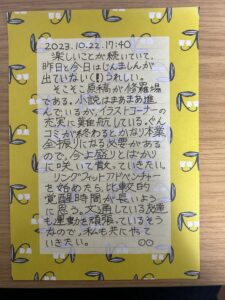 2023.10.22.17:40
楽しいことが続いていて、
昨日と今日はじんましんが
出ていない(!)うれしい。
そこそこ原稿が修羅場
である。小説はまあまあ進
んでいるが、イラストコーナーの
充実に難航している。ぐん
コミが終わるとかなり本業
全振りになる必要があるの
で、今よ盛りとばかり
に咲いて費えっていきたい。
リングフィットアドベンチャー
を始めたら、比較的
覚醒時間が長いよう
に思う。文通している
も運動を頑張っているそう
なので、私も共にやって
いきたい。 ○○